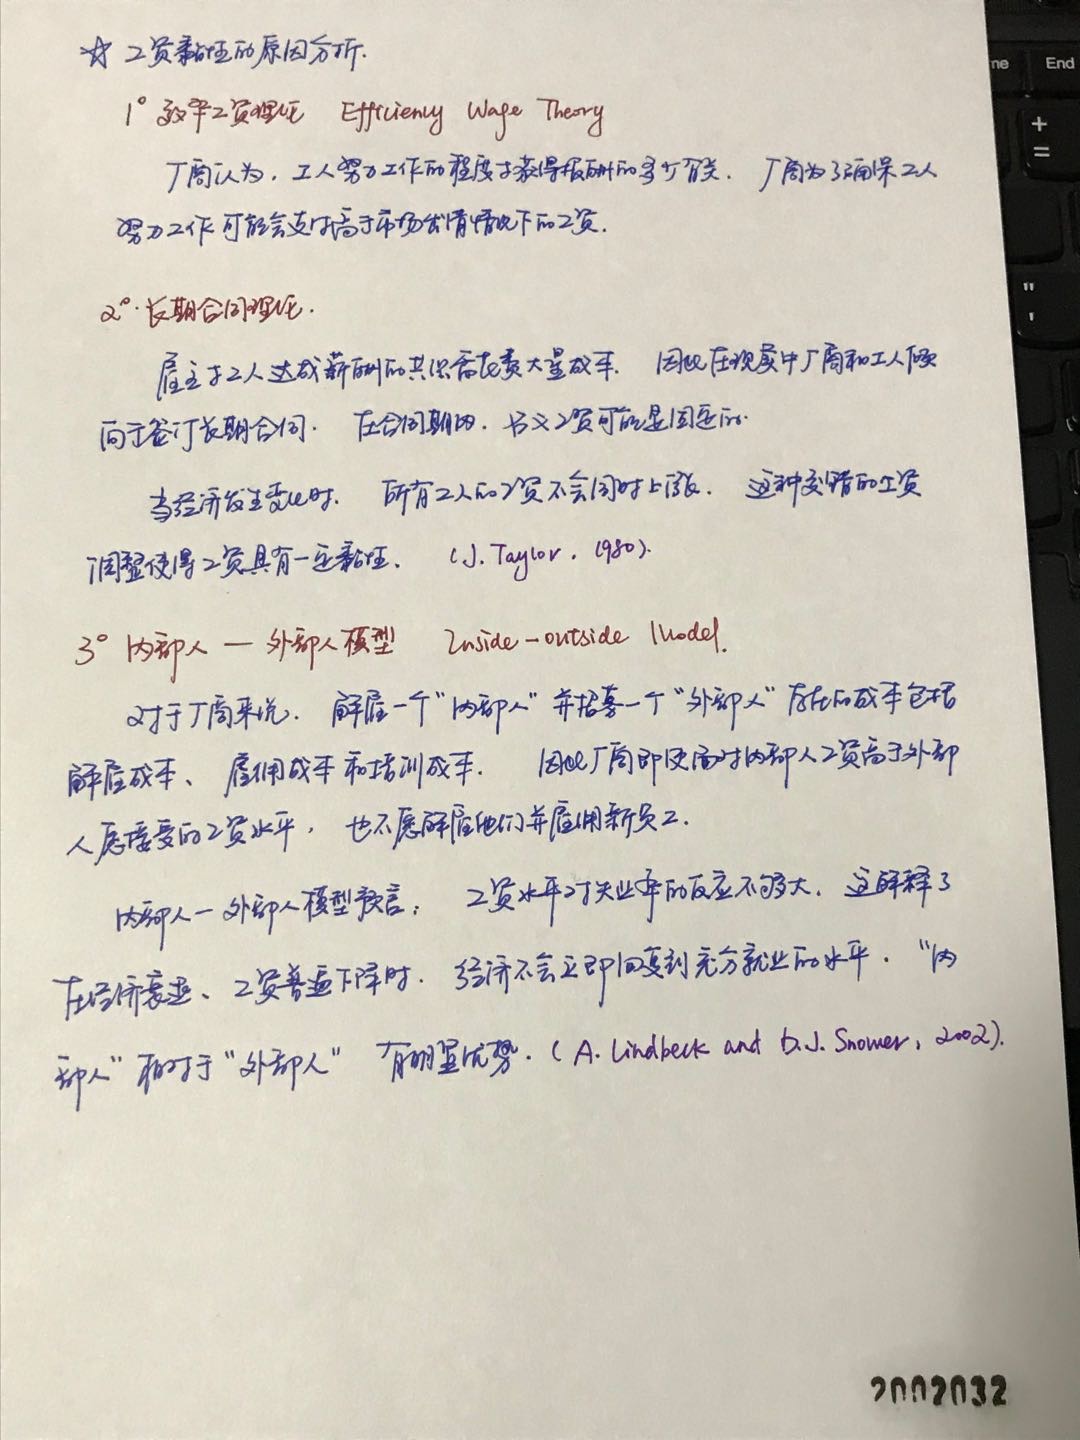 ☆ 工资黏性的原因分析.
1° 效率工资理论 Efficiency Wage Theory
厂商认为, 工人努力工作的程度与获得报酬的多少有关. 厂商为了确保工人
努力工作可能会支付高于市场出清情况下的工资.
2°. 长期合同理论.
雇主与工人达成薪酬的共识需花费大量成本. 因此在现实中厂商和工人倾
向于签订长期合同. 在合同期内, 名义工资可能是固定的.
当经济发生变化时. 所有工人的工资不会同时上涨. 这种交错的工资
调整使得工资具有一定黏性. (J. Taylor, 1980).
3° 内部人 — 外部人模型 Inside-outside Model.
对于厂商来说. 解雇一个"内部人"并招募一个"外部人"存在的成本包括
解雇成本、雇佣成本和培训成本. 因此厂商即使面对内部人工资高于外部
人愿接受的工资水平, 也不愿解雇他们并雇佣新员工.
内部人—外部人模型预言: 工资水平对失业率的反应不够大. 这解释了
在经济衰退、工资普遍下降时. 经济不会立即回复到充分就业的水平. "内
部人"相对于"外部人" 有明显优势. (A. Lindbeck and D.J. Snower, 2002).
2002032
End
+
=
"
'